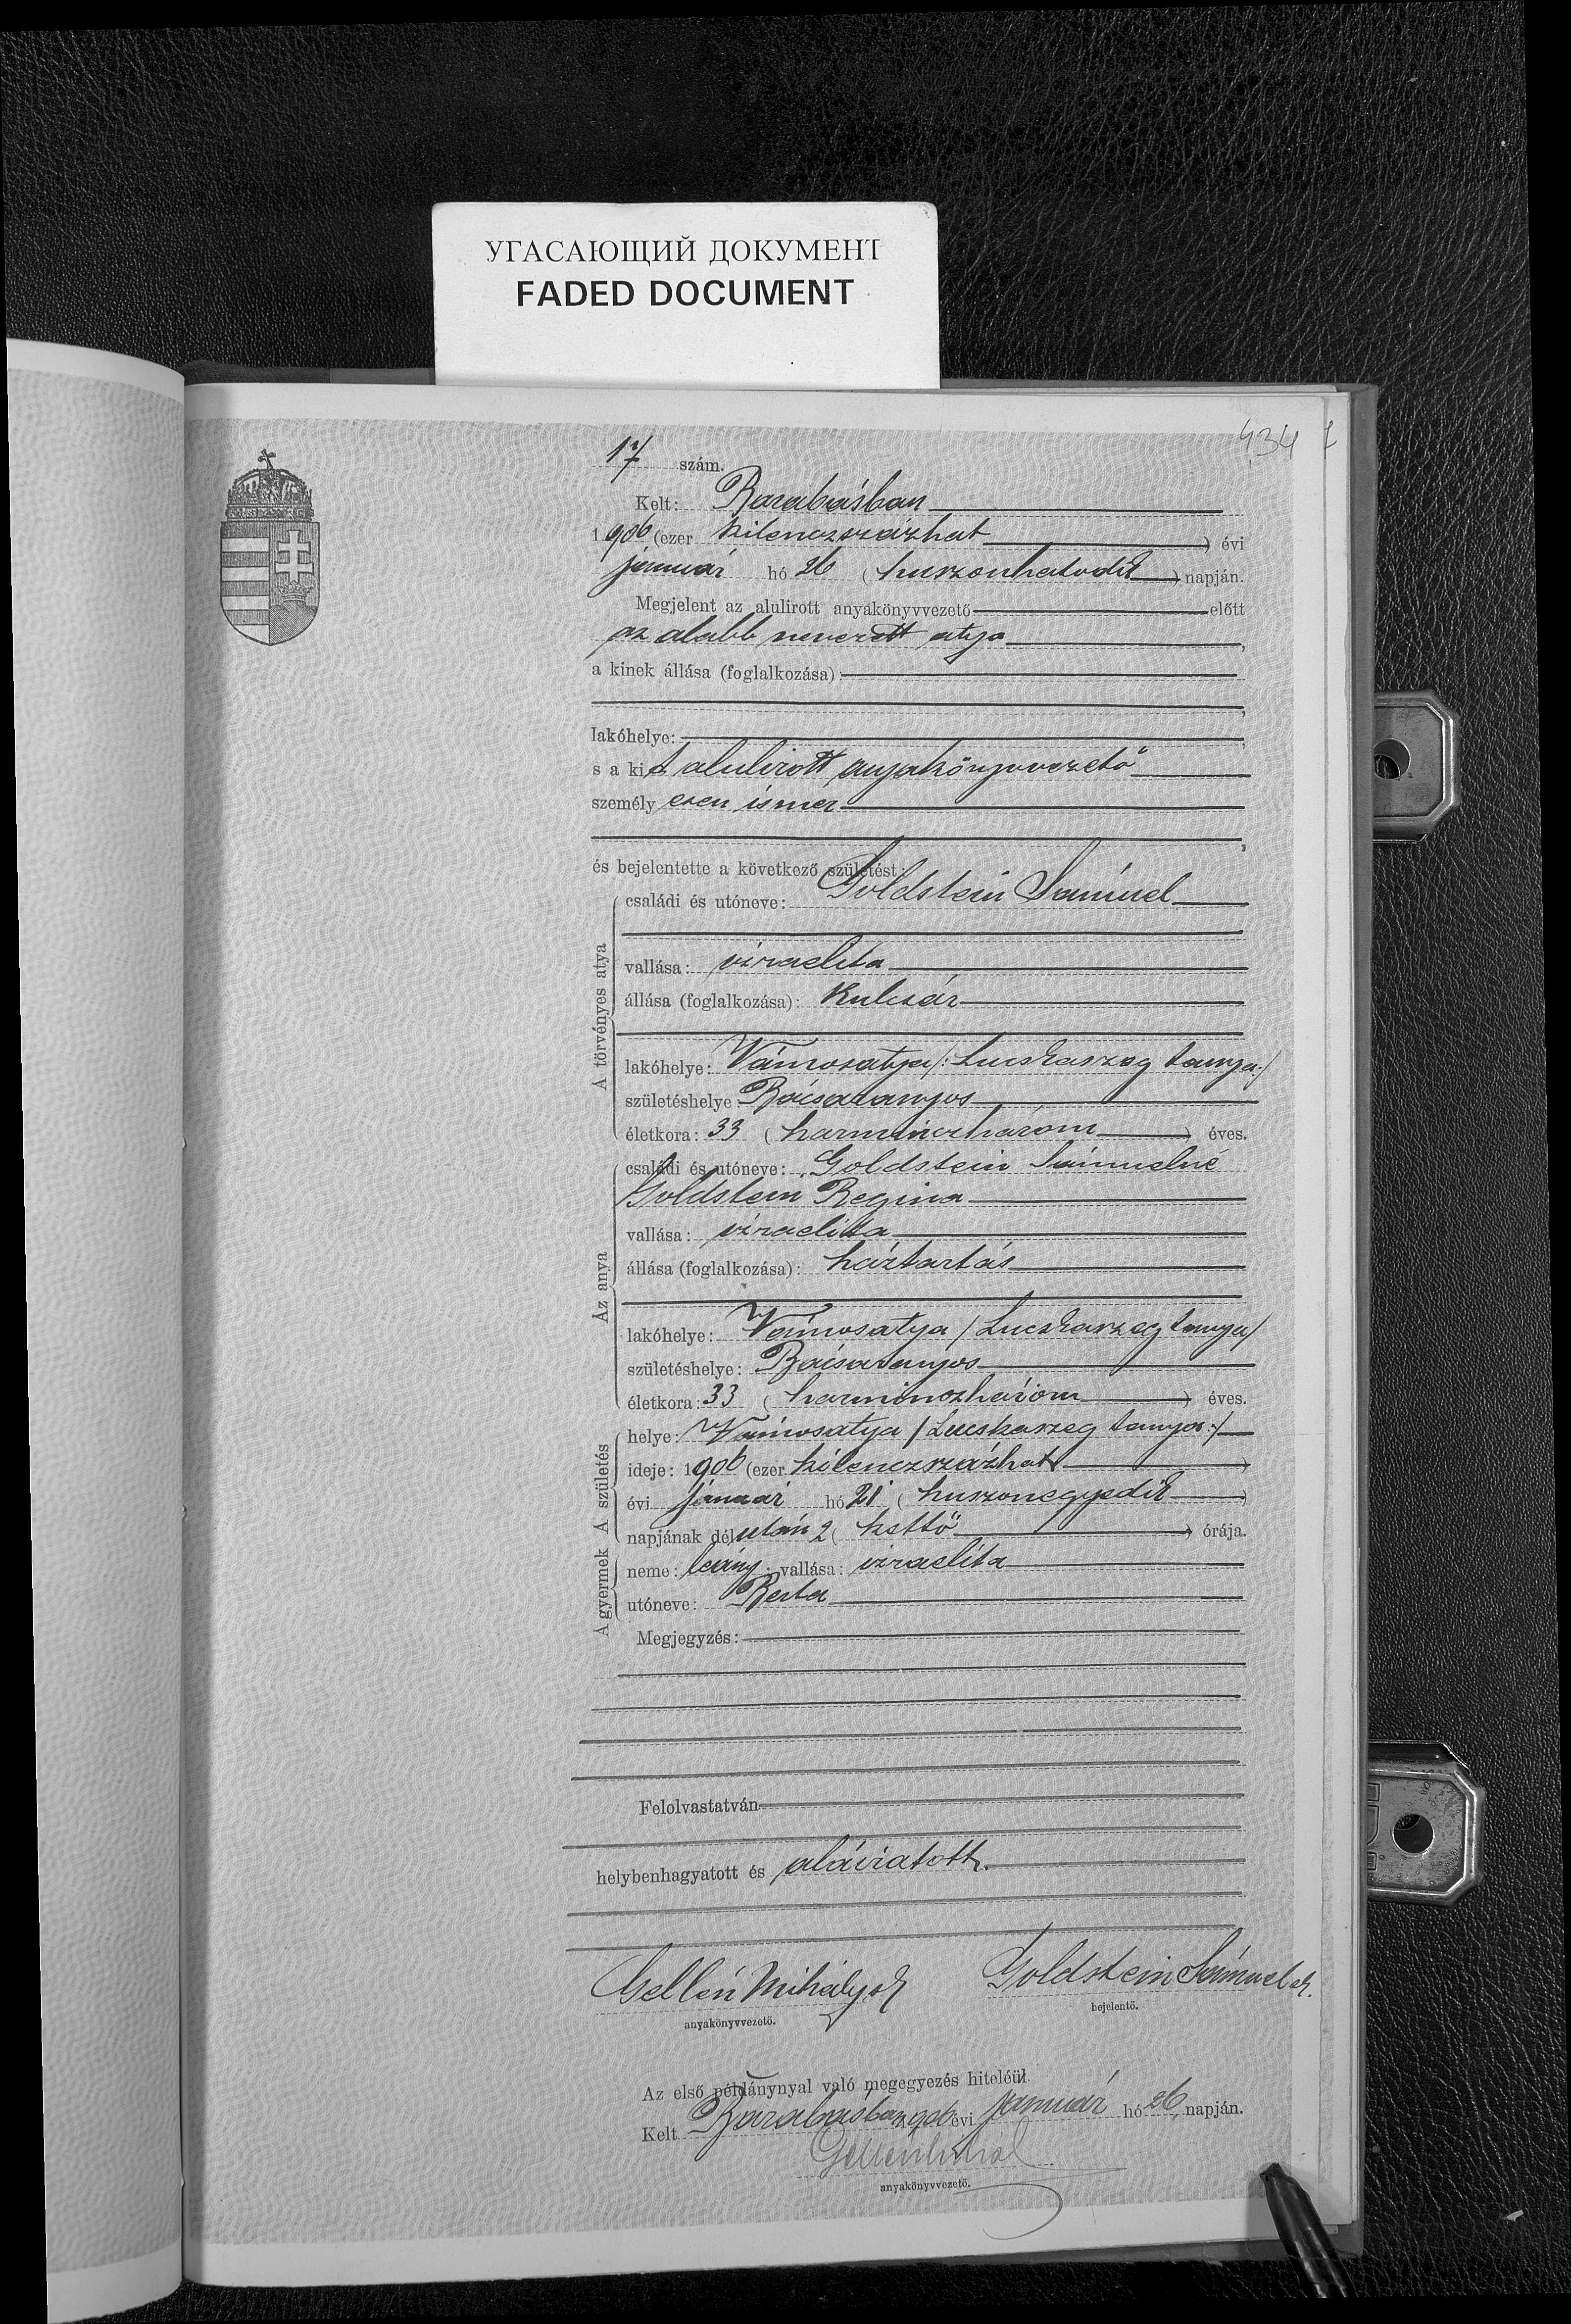 УГАСАЮЩИЙ ДОКУМЕНТ
FADED DOCUMENT
434
17 szám.
Kelt: Barabásban
1906 (ezer kilenczszázhat) évi
január hó 26 (huszonhatodik) napján.
Megjelent az alulirott anyakönyvvezető előtt
az alabb nevezett atya,
a kinek állása (foglalkozása):
lakóhelye:
s a kit alulirott anyakönyvvezető
személyesen ismer
és bejelentette a következő születést:
A törvényes atya
családi és utóneve: Goldstein Sámuel
vallása: izraelita
állása (foglalkozása): kulcsár
lakóhelye: Vámosatya /: Lucskaszeg tanya :/
születéshelye: Bácsaranyos
életkora: 33 (harminczhárom) éves.
Az anya
családi és utóneve: Goldstein Sámuelné
Goldstein Regina
vallása: izraelita
állása (foglalkozása): háztartás
lakóhelye: Vámosatya / Lucskaszeg tanya /
születéshelye: Bácsaranyos
életkora: 33 (harminczhárom) éves.
A születés
helye: Vámosatya / Lucskaszeg tanya :/
ideje: 1906 (ezer kilenczszázhat)
évi január hó 21 (huszonegyedik)
napjának délután 2 (kettő) órája.
A gyermek
neme: leány; vallása: izraelita
utóneve: Berta
Megjegyzés:
Felolvastatván
helybenhagyatott és aláiratott.
Gellén Mihály sk Goldstein Sámuel sk.
anyakönyvvezető. bejelentő.
Az első példánynyal való megegyezés hiteléül.
Kelt Barabásban 1906 évi január hó 26 napján.
anyakönyvvezető.